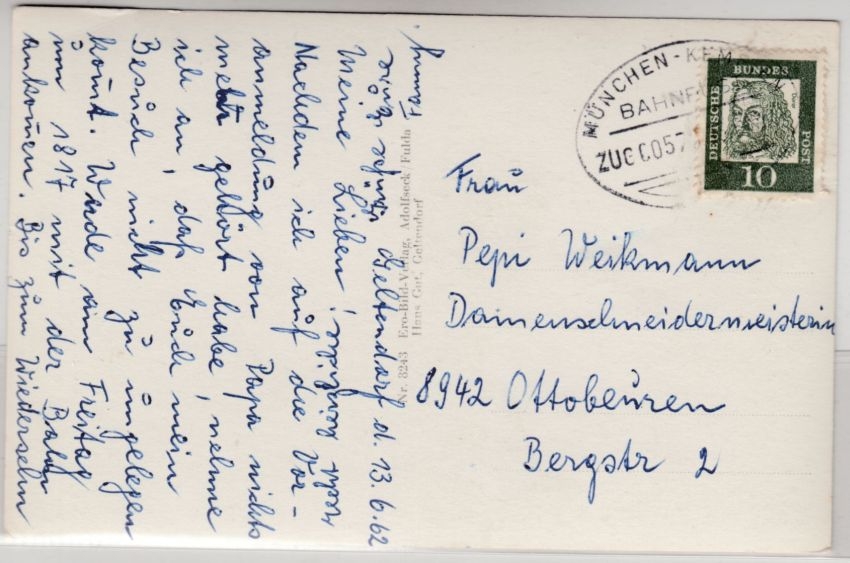 Geltendorf d. 13.6.62
Meine Lieben!
Nachdem ich auf die Vor-
anmeldung von Papa nichts
mehr gehört habe, nehme
ich an, daß Euch mein
Besuch nicht zu ungelegen
kommt. Würde am Freitag
um 1817 mit der Bahn
ankommen. Bis zum Wiedersehn
recht herzliche
Grüße
Nr. 3243 Ero-Bild-Verlag, Adolfseck/Fulda
Hans Gut, Geltendorf
MÜNCHEN-KEM
BAHNP
ZUG 0057
DEUTSCHE BUNDESPOST
10
Frau
Pepi Weikmann
Damenschneidermeisterin
8942 Ottobeuren
Bergstr 2